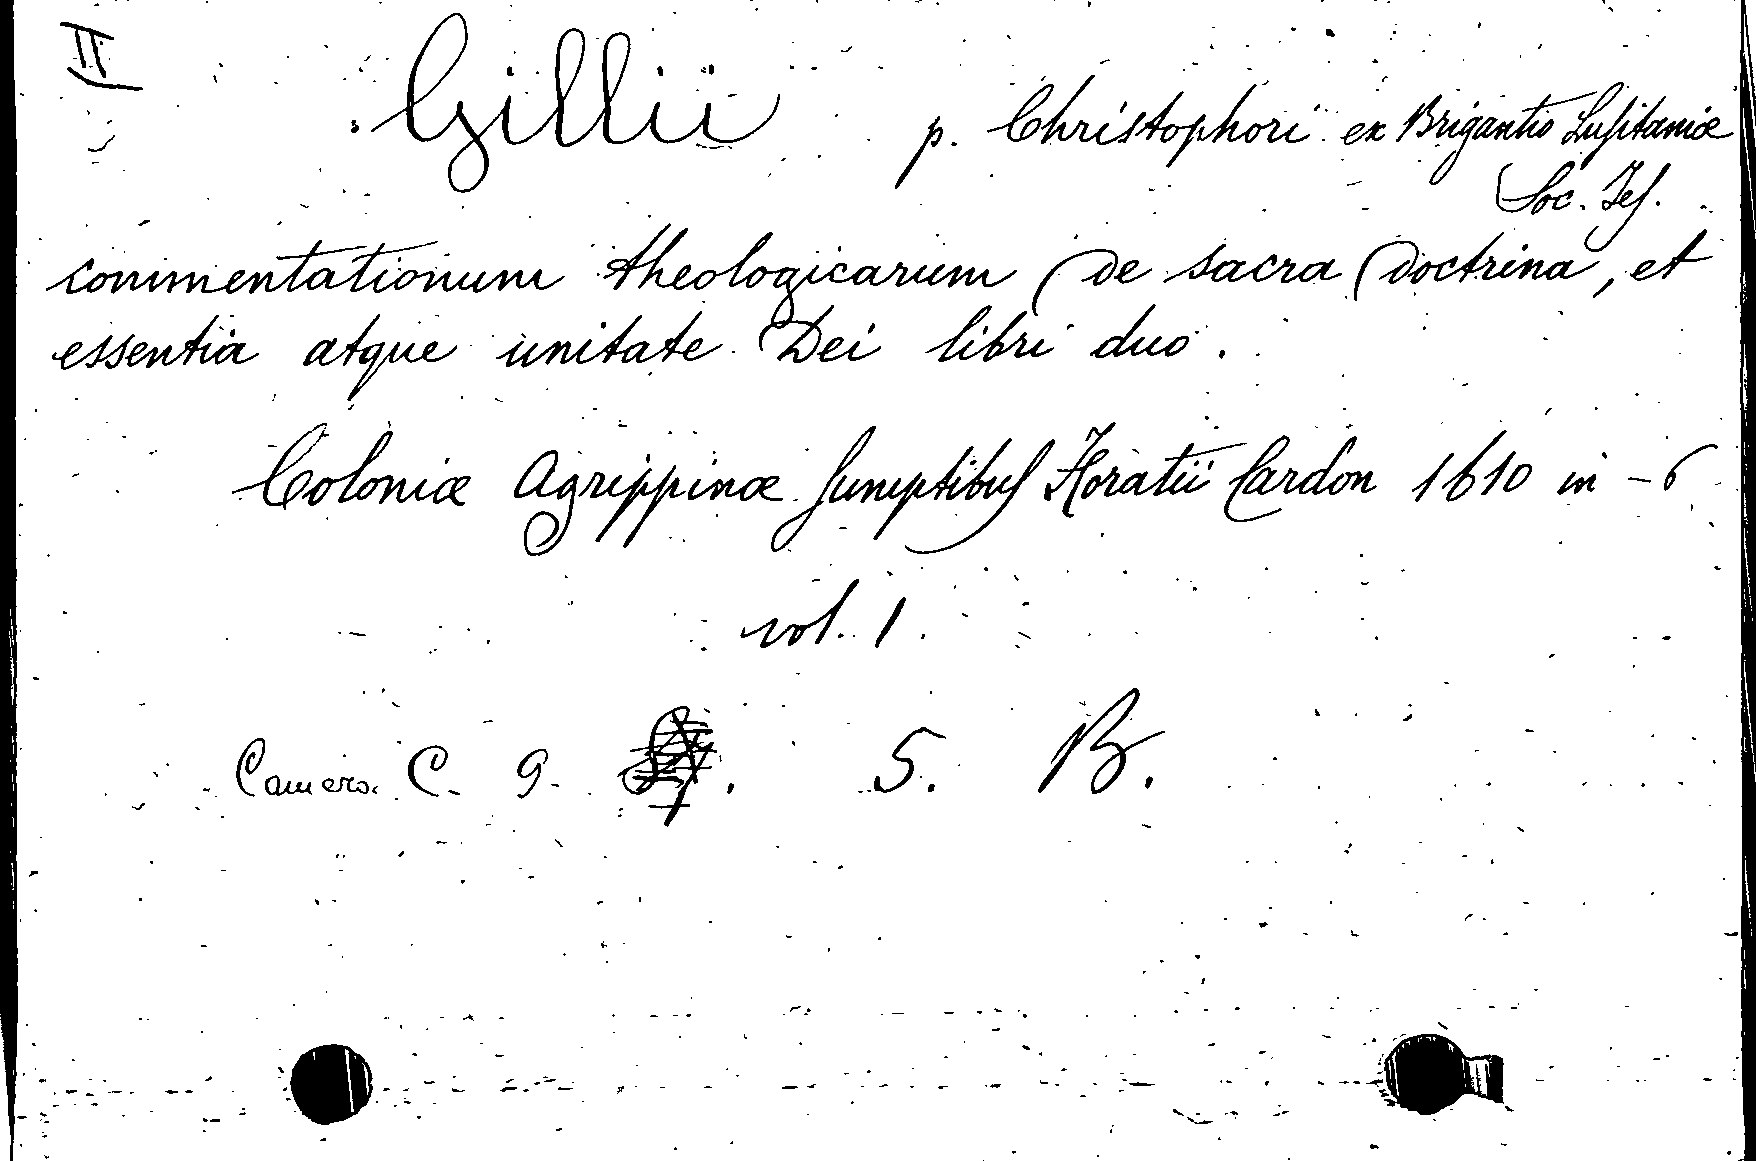 II
Gillii p. Christophori ex Brigantio Lusitaniæ
Soc. Jes.
commentationum theologicarum de sacra doctrina, et
essentia atque unitate Dei libri duo.
Coloniæ Agrippinæ sumptibus Horatii Cardon 1610 in-6
vol. 1.
Camera. C. 9. 5. B.